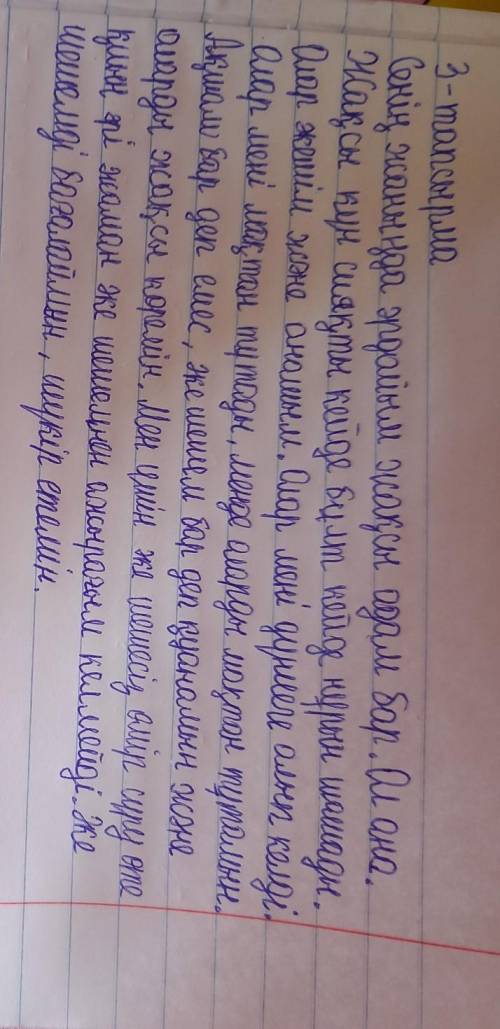 3-тапсырма
Сенің жаныңда әрдайым жақсы адам бар. Ол ана.
Жақсы күн сияқты кейде бұлт кейде нұрын шашады.
Олар әкешім және анашым. Олар мені дүниеге алып келді.
Олар мені мақтан тұтады, менде оларды мақтан тұтамын.
Ақшам бар деп емес, әке шешем бар деп қуанамын және
оларды жақсы көремін. Мен үшін әке шешесіз өмір сүру өте
қиын әрі жаман әке шешемнен ажырағым келмейді. Әке
шешемді бағалаймын, шүкір етемін.